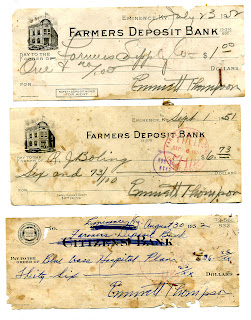 EMINENCE, KY. July 23 1952
FARMERS DEPOSIT BANK
PAY TO THE ORDER OF Farmers Supply Co $1.00
One & no/100 DOLLARS
FOR
Emmett Thompson
EMINENCE, KY. Sept 1 1951
FARMERS DEPOSIT BANK
PAY TO THE ORDER OF R. J. Boling $6.73
Six and 73/100 DOLLARS
FOR
Emmett Thompson
Eminence Ky
No. August 30 1952
Farmers Deposit Bank
CITIZENS BANK
PAY TO THE ORDER OF Blue Cross Hospital Plan $36
Thirty Six DOLLARS
Emmett Thompson